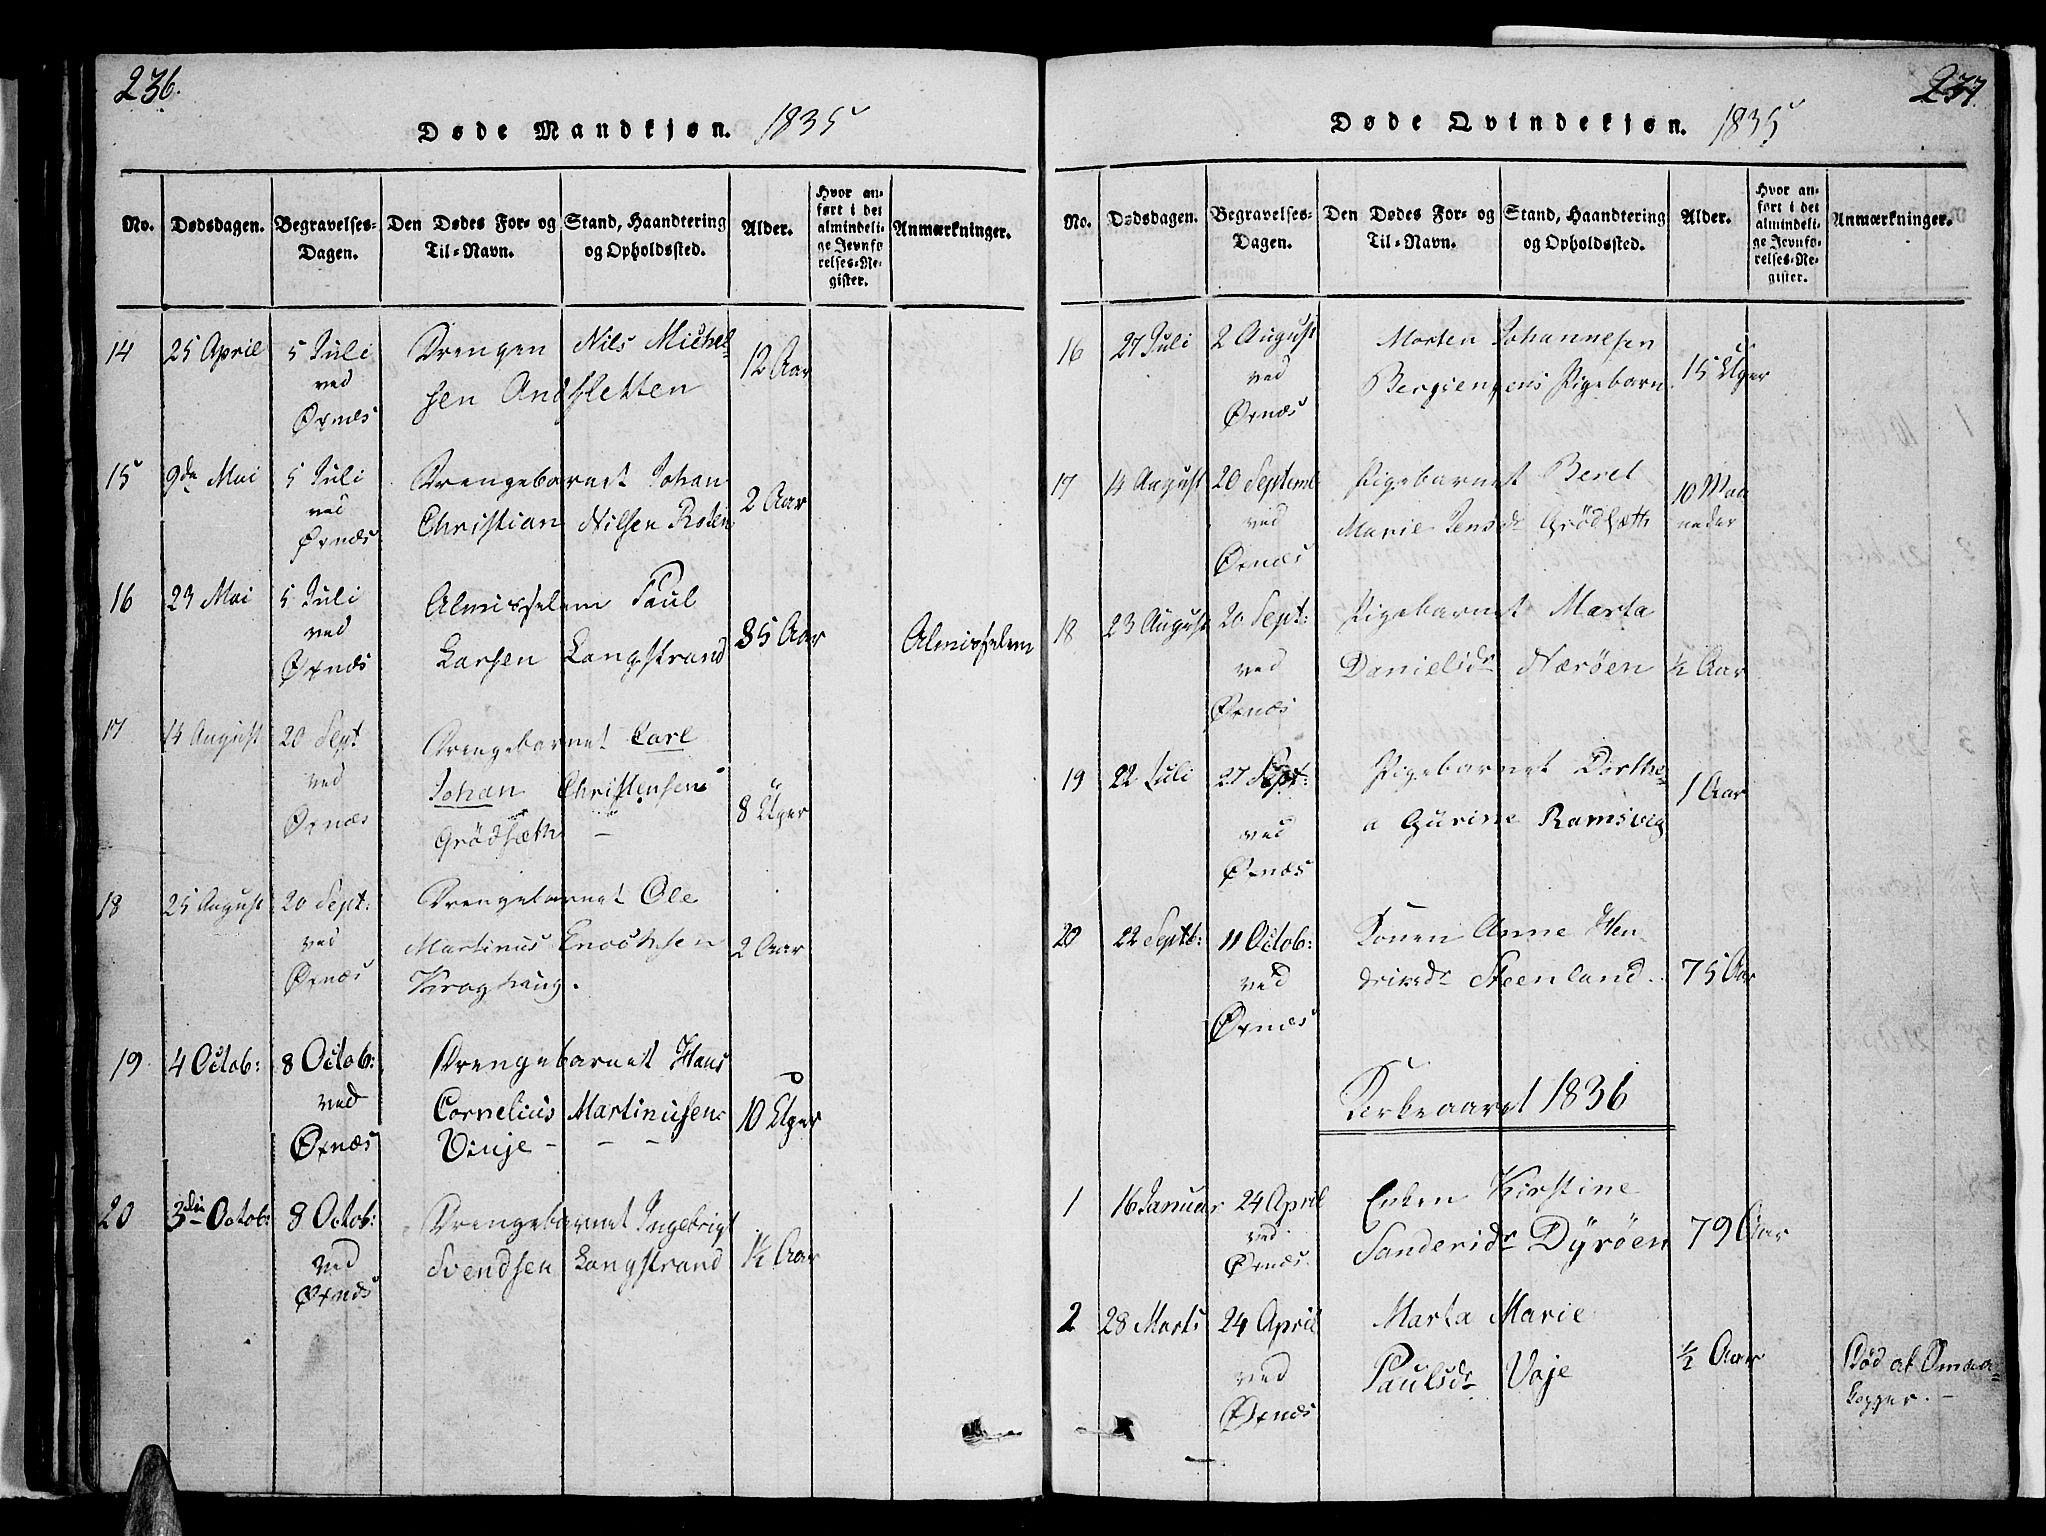 236.
Døde Mandkjøn. 1835
No. Dødsdagen. Begravelses-Dagen. Den Dødes For- og Til-Navn. Stand, Haandtering og Opholdssted. Alder. Hvor anført i det almindelige Jevnførelses-Register. Anmærkninger.
14 25 April 5 Juli Drengen Nils Michel-
ved sen Andsletten 12 Aar
Ørnes
15 9de Mai 5 Juli Drengebarnet Johan
ved Christian Nilsen Roten 2 Aar
Ørnes
16 23 Mai 5 Juli Almisselem Paul
ved Larsen Langstrand 85 Aar Almisselem
Ørnes
17 14 August 20 Sept Drengebarnet Carl
ved Johan Christensen
Ørnes Grödsæth – 8 Uger
18 25 August 20 Sept: Drengebarnet Ole
ved Martinus Enochsen 2 Aar
Ørnes Kraghaug.
19 4 Octob: 8 Octob: Drengebarnet Hans
ved Cornelius Martinusen 10 Uger
Ørnes Vinje – – –
20 3die Octob: 8 Octob: Drengebarnet Ingebrigt
ved Svendsen Langstrand 1½ Aar
Ørnes
237
Døde Qvindekjøn. 1835
No. Dødsdagen. Begravelses-Dagen. Den Dødes For- og Til-Navn. Stand, Haandtering og Opholdssted. Alder. Hvor anført i det almindelige Jevnførelses-Register. Anmærkninger.
16 27 Juli 2 August Morten Johannesen
ved Bergiengens Pigebarn 15 Uger
Ørnes
17 14 August 20 Septemb Pigebarnet Beret 10 Maa
ved Marie Jensdr Grödsæth neder
Ørnes
18 23 August 20 Sept: Pigebarnet Marta
ved Danielsdr Nærøen ½ Aar
Ørnes
19 22 Juli 27 Sept: Pigebarnet Dorthe-
ved a Gurine Ramsvig 1 Aar
Ørnes
20 22 Septb: 11 Octob: Konen Anne Hen-
ved driksdr Steenland 75 Aar
Ørnes
Kirkeaaret 1836
1 16 Januar 24 April Enken Kirstine
ved Sandersdr Dÿröen 79 Aar
Ørnes
2 28 Marts 24 April Marta Marie
ved Paulsdr Vaje ½ Aar Död af Smaa-
Ørnes kopper. –